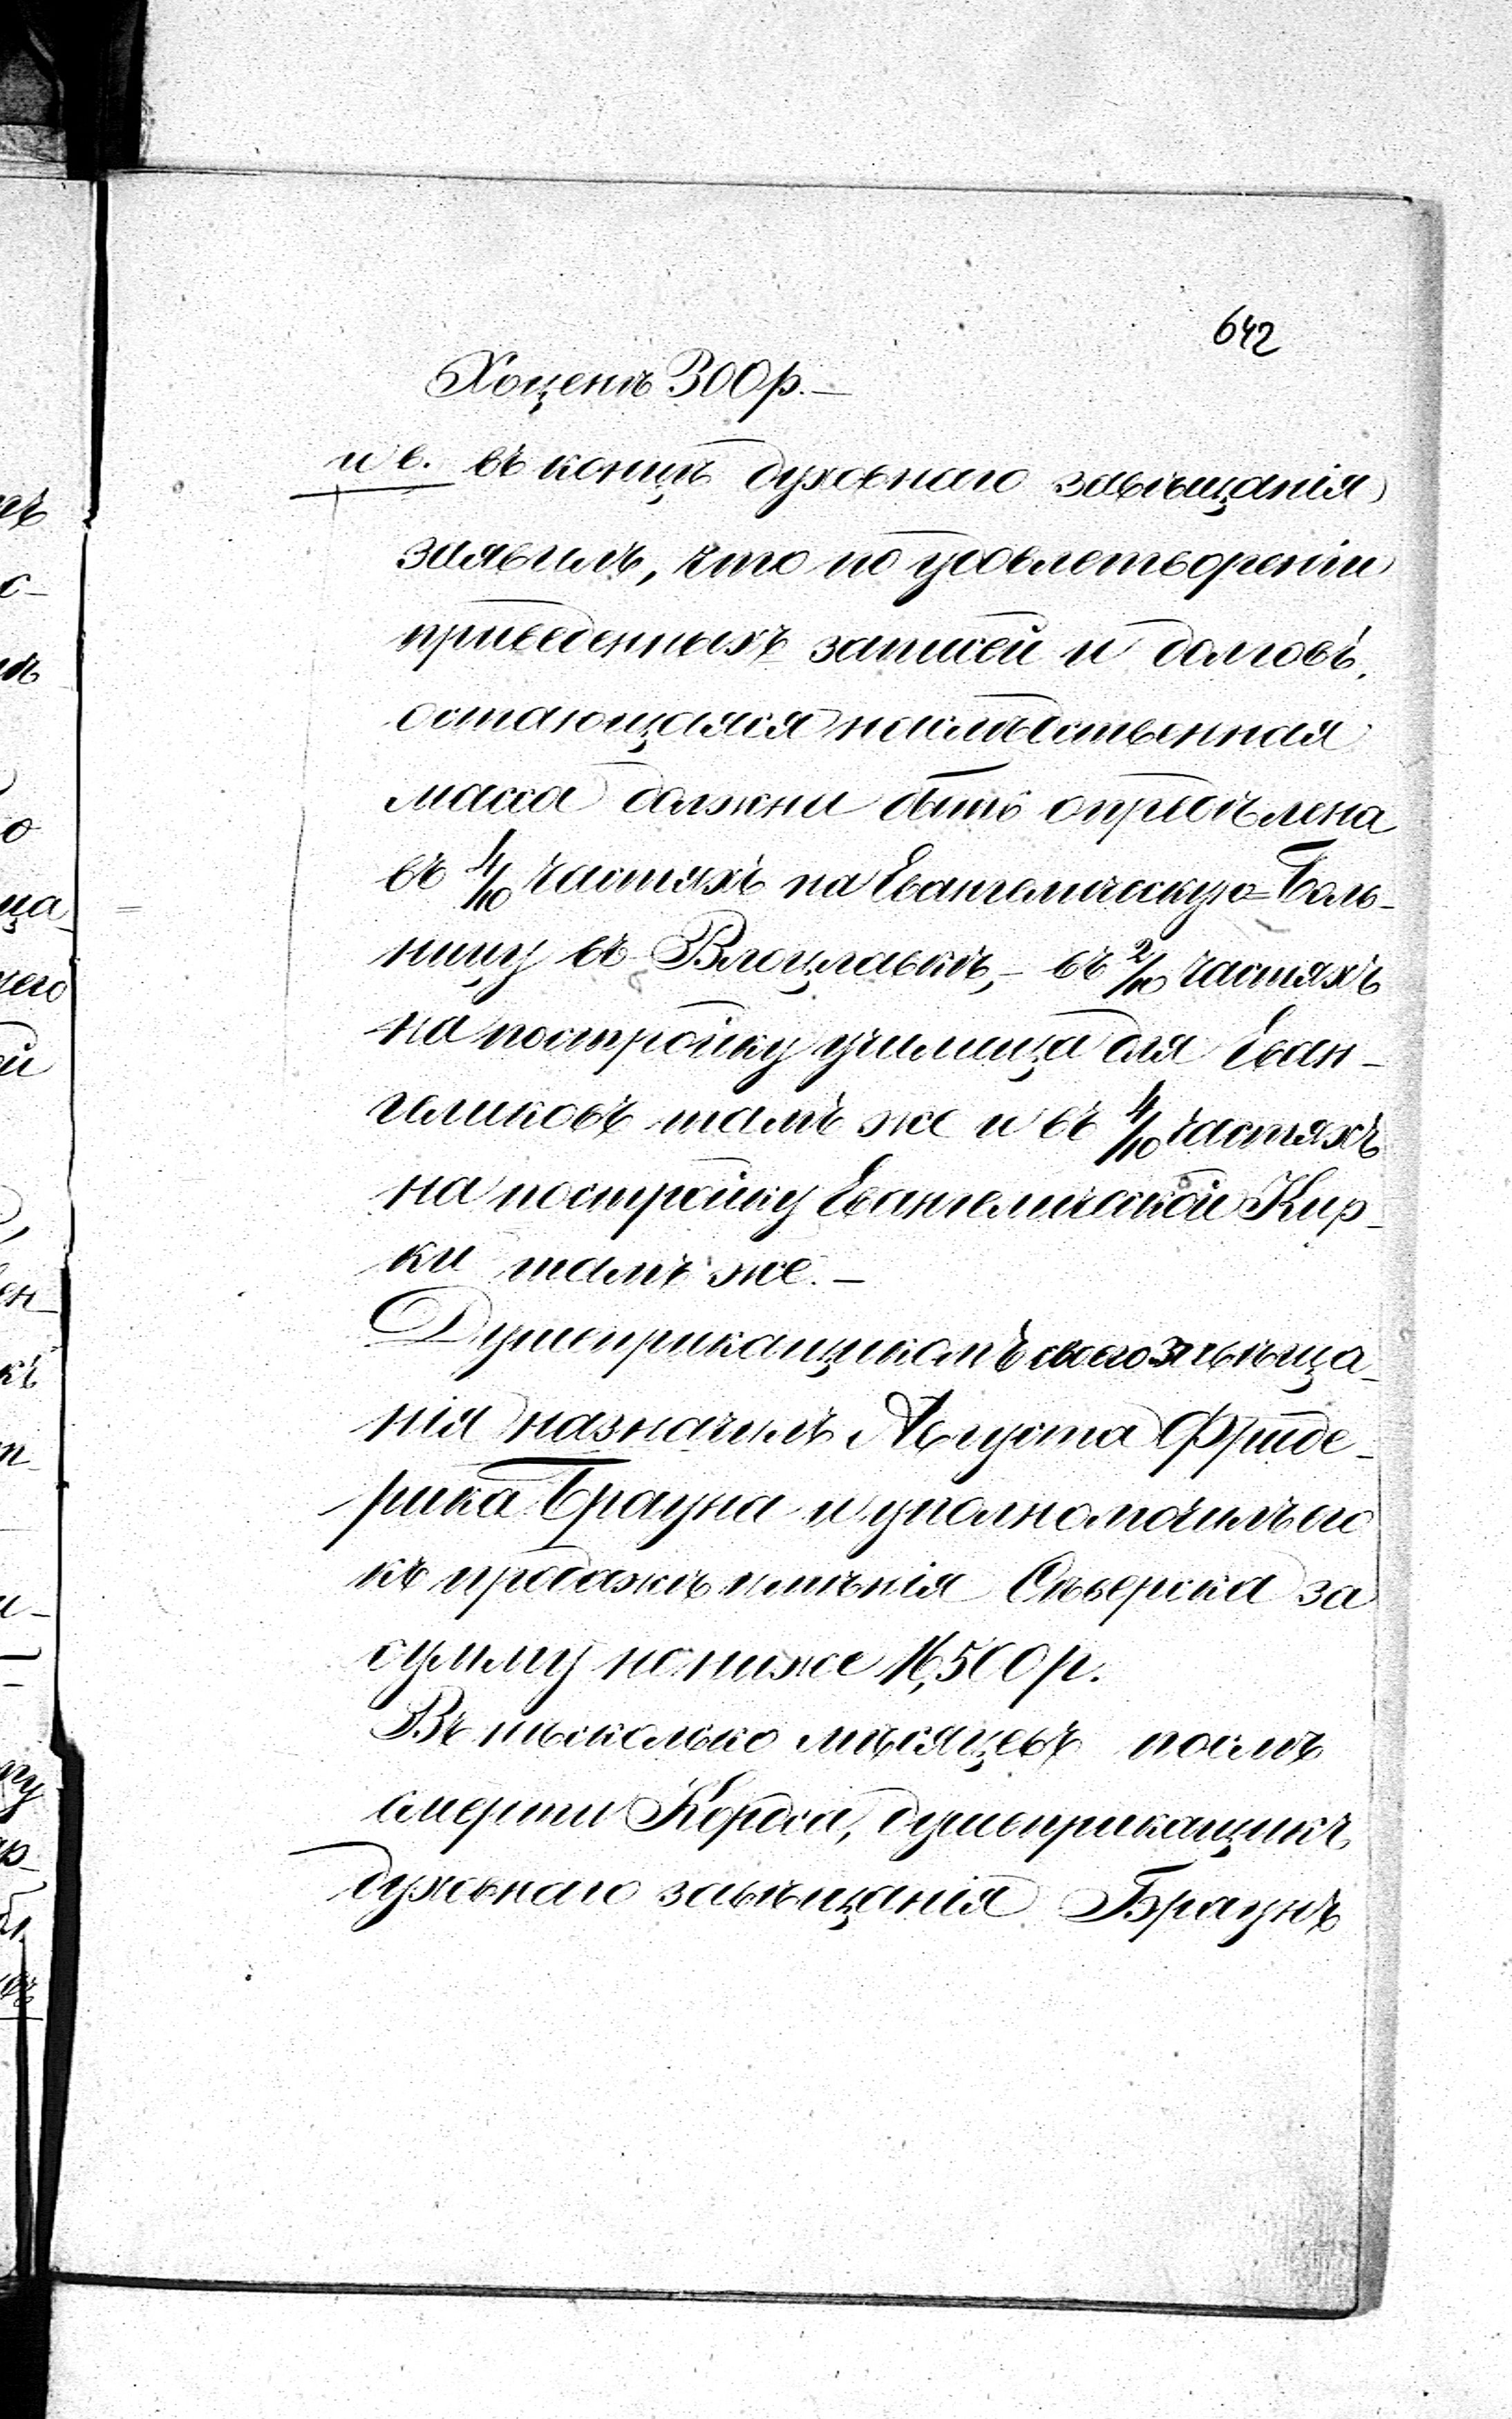 642
Хоценъ 300 р.—
и в. въ концѣ духовнаго завѣщанія
заявилъ, что по удовлетвореніи
приведенныхъ записей и долговъ,
остающаяся наслѣдственная
масса должна быть опредѣлена
въ 4/10 частяхъ на Евангелическую Боль-
ницу въ Влоцлавкѣ,- въ 2/10 частяхъ
на постройку училища для Еван-
геликовъ тамъ же и въ 4/10 частяхъ
на постройку Евангелической Кир-
ки тамъ же.—
Душеприкащикомъ своего завѣща-
нія назначилъ Августа Фриде-
рика Брауна и уполномочилъ его
къ продажѣ имѣнія Сѣверска за
сумму не ниже 16,500 р.
Въ нѣсколько мѣсяцевъ послѣ
смерти Кордса, душеприкащикъ
духовнаго завѣщанія Браунъ